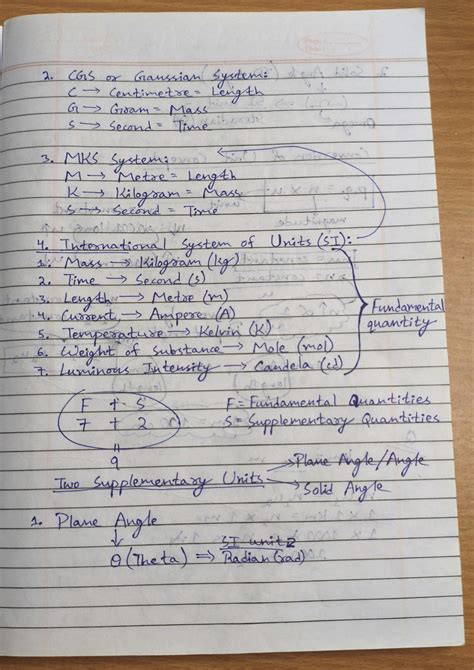 2. CGS or Gaussian System:
C → Centimetre = Length
G → Gram = Mass
S → Second = Time
3. MKS System:
M → Metre = Length
K → Kilogram = Mass
S → Second = Time
4. International System of Units (SI):
1. Mass → Kilogram (kg)
2. Time → Second (s)
3. Length → Metre (m)
4. Current → Ampere (A)
5. Temperature → Kelvin (K)
6. Weight of Substance → Mole (mol)
7. Luminous Intensity → Candela (cd)
Fundamental
quantity
F + S
7 + 2
9
F = Fundamental Quantities
S = Supplementary Quantities
Two Supplementary Units → Plane Angle/Angle
→ Solid Angle
1. Plane Angle
↓ SI unit
θ (Theta) ⇒ Radian (rad)